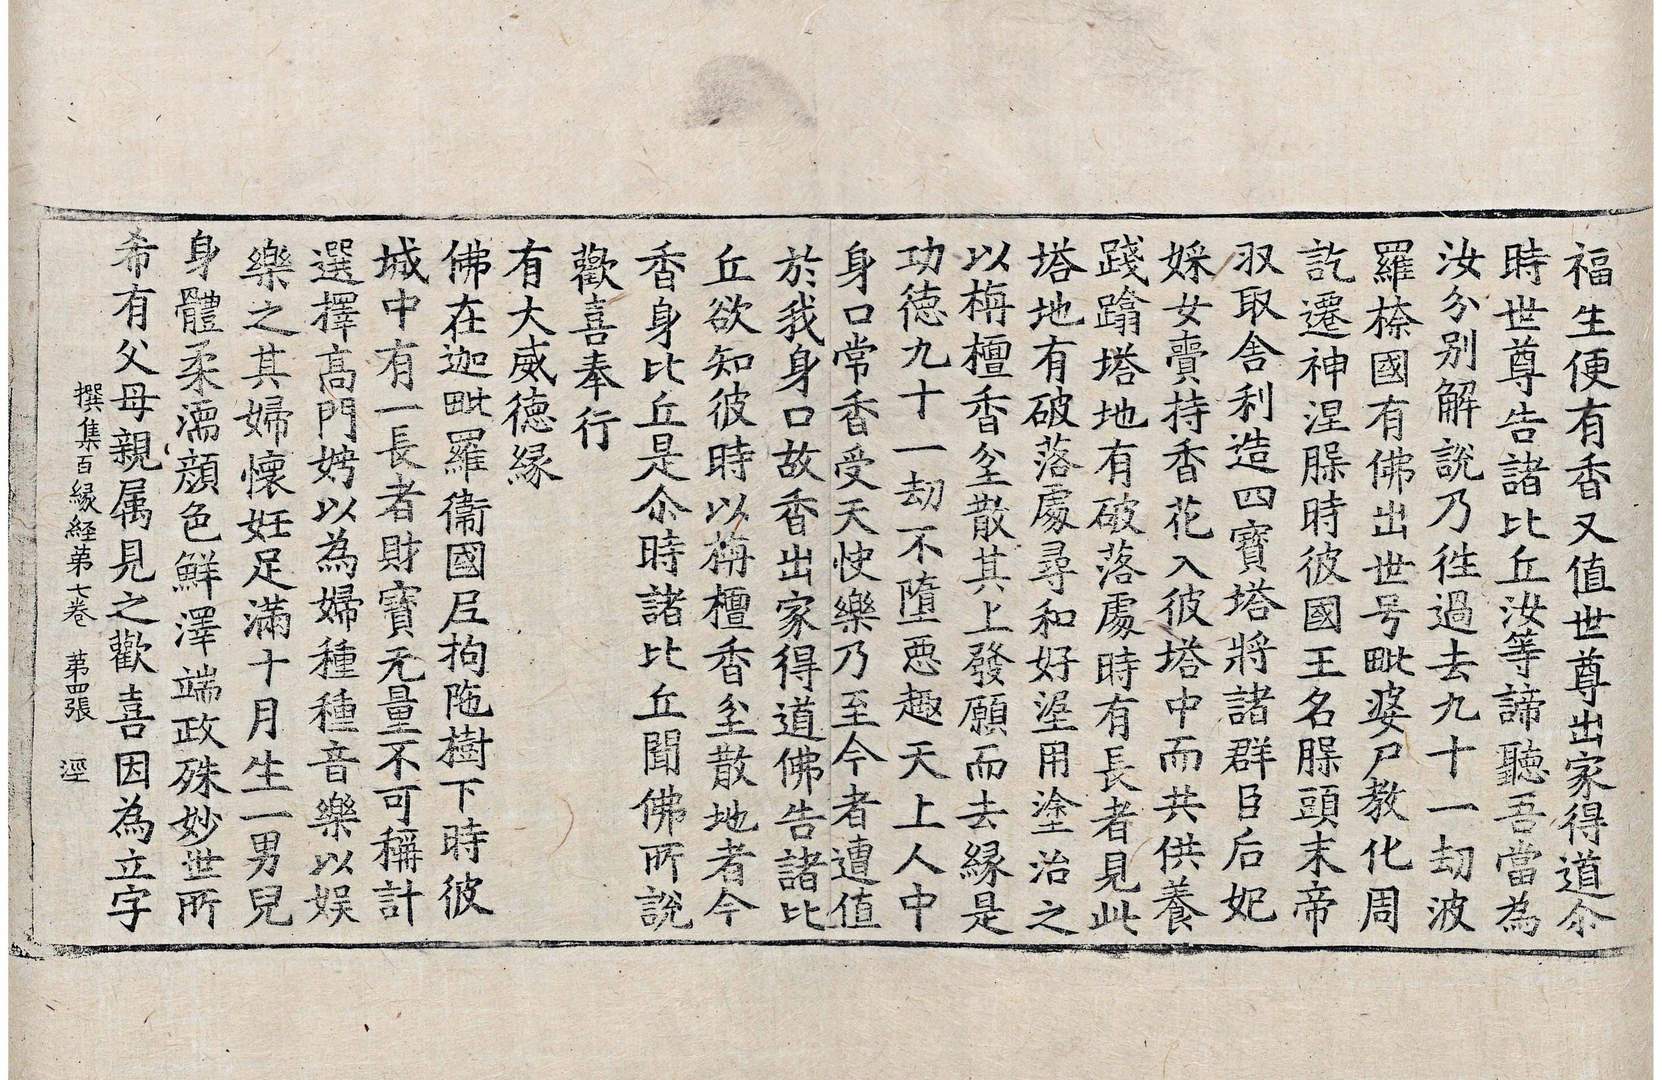 福生便有香又值世尊出家得道尒
時世尊告諸比丘汝等諦聽吾當為
汝分別解說乃徃過去九十一劫波
羅㮈國有佛出世号毗婆尸教化周
訖遷神涅槃時彼國王名槃頭末帝
収取舍利造四寶塔將諸群臣后妃
婇女賷持香花入彼塔中而共供養
踐蹹塔地有破落處時有長者見此
塔地有破落處尋和好埿用塗治之
以栴檀香坌散其上發願而去緣是
功德九十一劫不墮惡趣天上人中
身口常香受天快樂乃至今者遭值
於我身口故香出家得道佛告諸比
丘欲知彼時以栴檀香坌散地者今
香身比丘是尒時諸比丘聞佛所說
歡喜奉行
有大威德緣
佛在迦毗羅衞國尼拘陁樹下時彼
城中有一長者財寶无量不可稱計
選擇高門娉以為婦種種音樂以娱
樂之其婦懷妊足滿十月生一男兒
身體柔濡顔色鮮澤端政殊妙世所
希有父母親属見之歡喜因為立字
撰集百緣経第七卷 第四張 涇